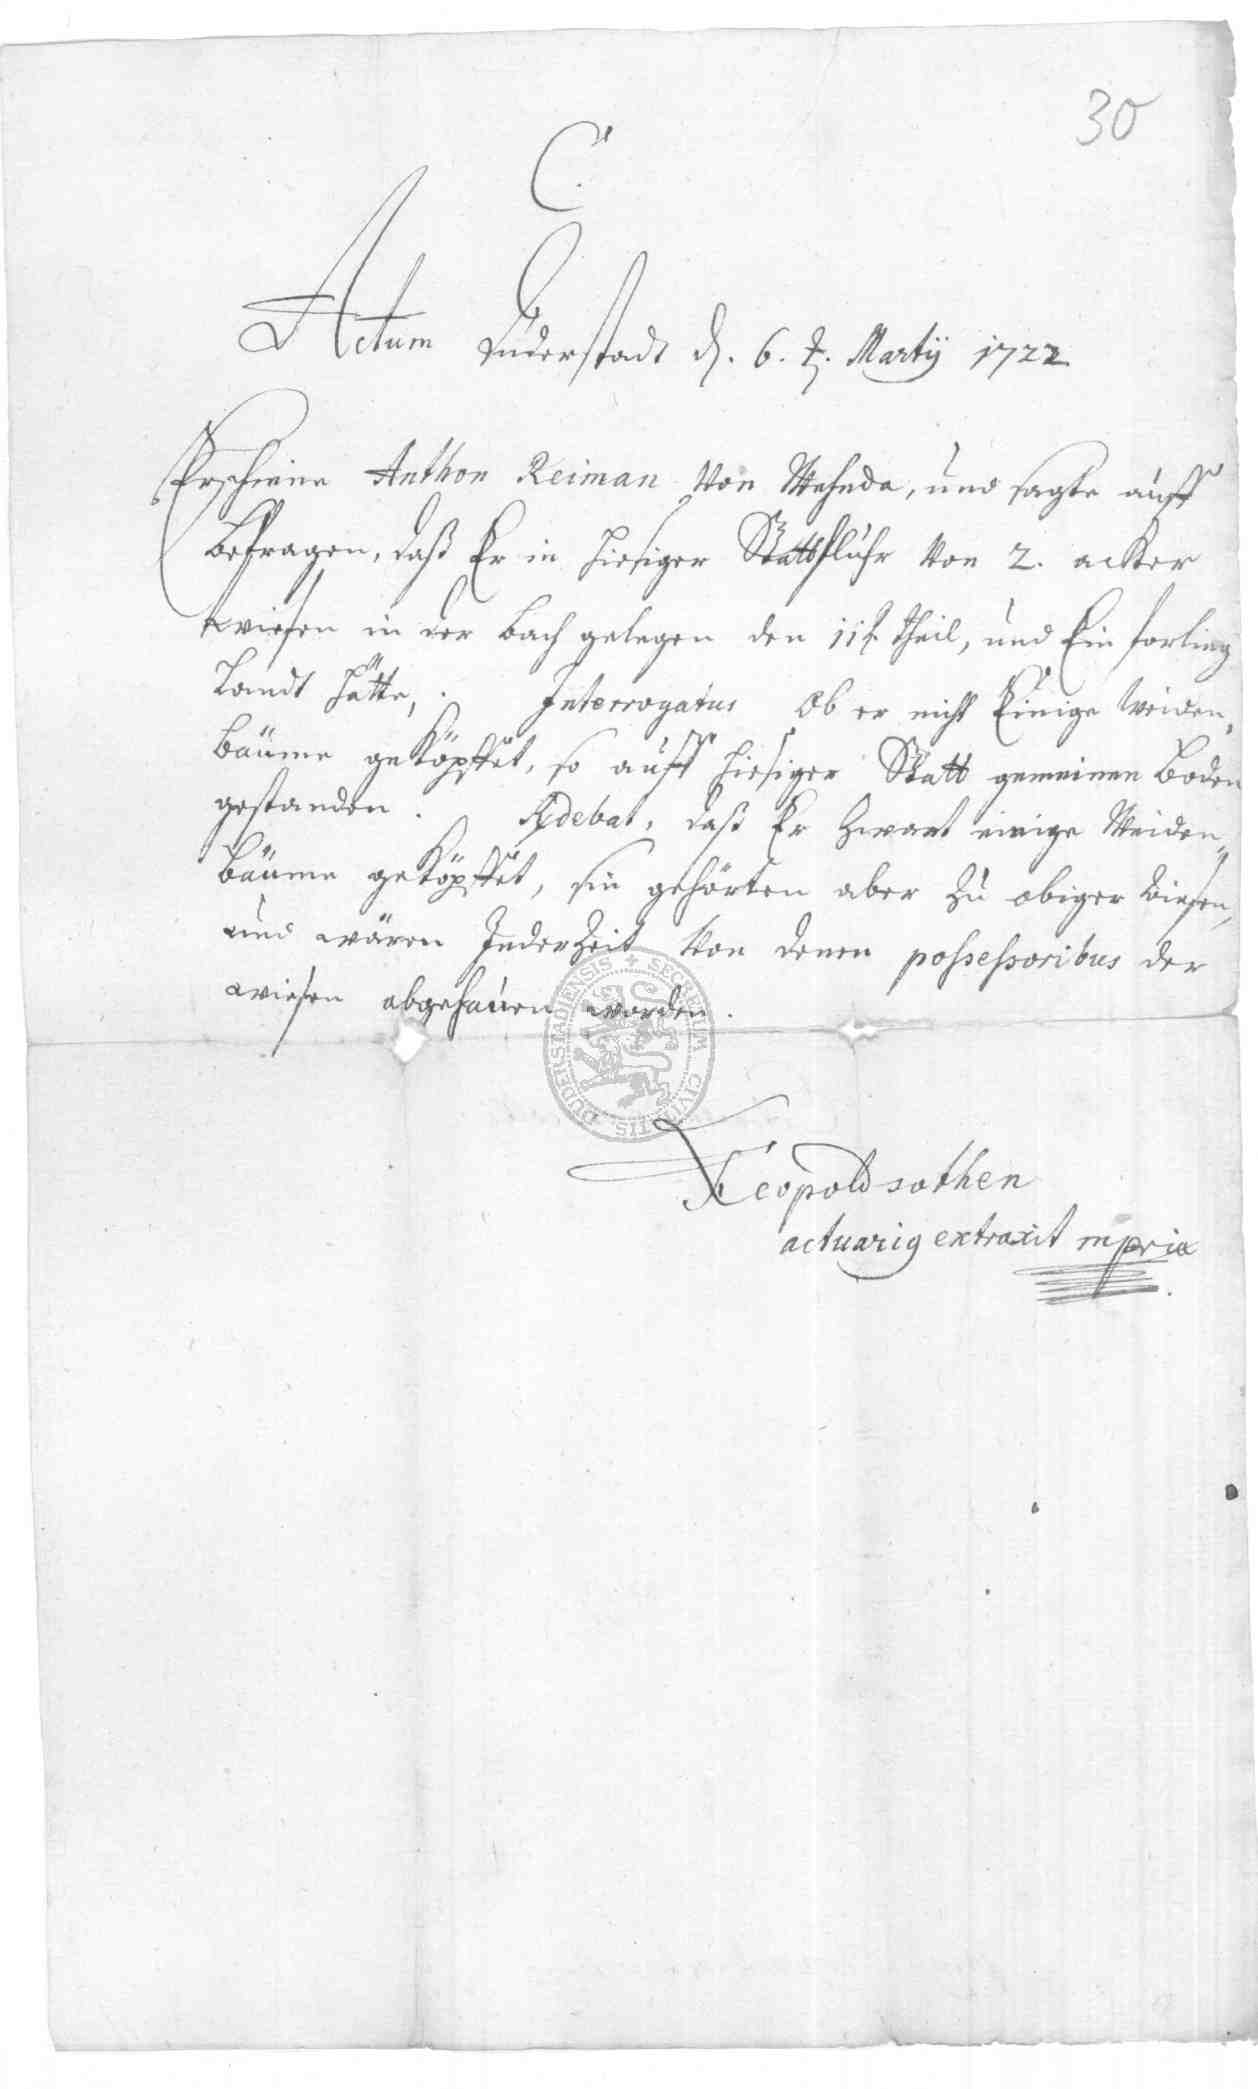 30
C.
Actum Duderstadt d. 6. t. Martÿ 1722
Erschiene Anthon Reiman von Wehnda, und sagte auff
befragen, daß Er in hiesiger Stattfluhr von 2. acker
wiesen in der bach gelegen den 11t. theil, und Ein forling
Landt hätte, Interrogatus Ob er nicht Einige Weiden,
bäume geköpffet, so auff hiesiger Statt gemeinen Boden
gestanden. Rdebat, daß Er zwart einige Weiden,,
bäume geköpffet, sie gehörten aber zu obiger wiesen,
und wären Jederzeit von denen possessoribus der
wiesen abgehauen worden.
SECRETUM CIVITATIS DUDERSTADIENSIS
Leopold sothen
actuarig extraxit mpria